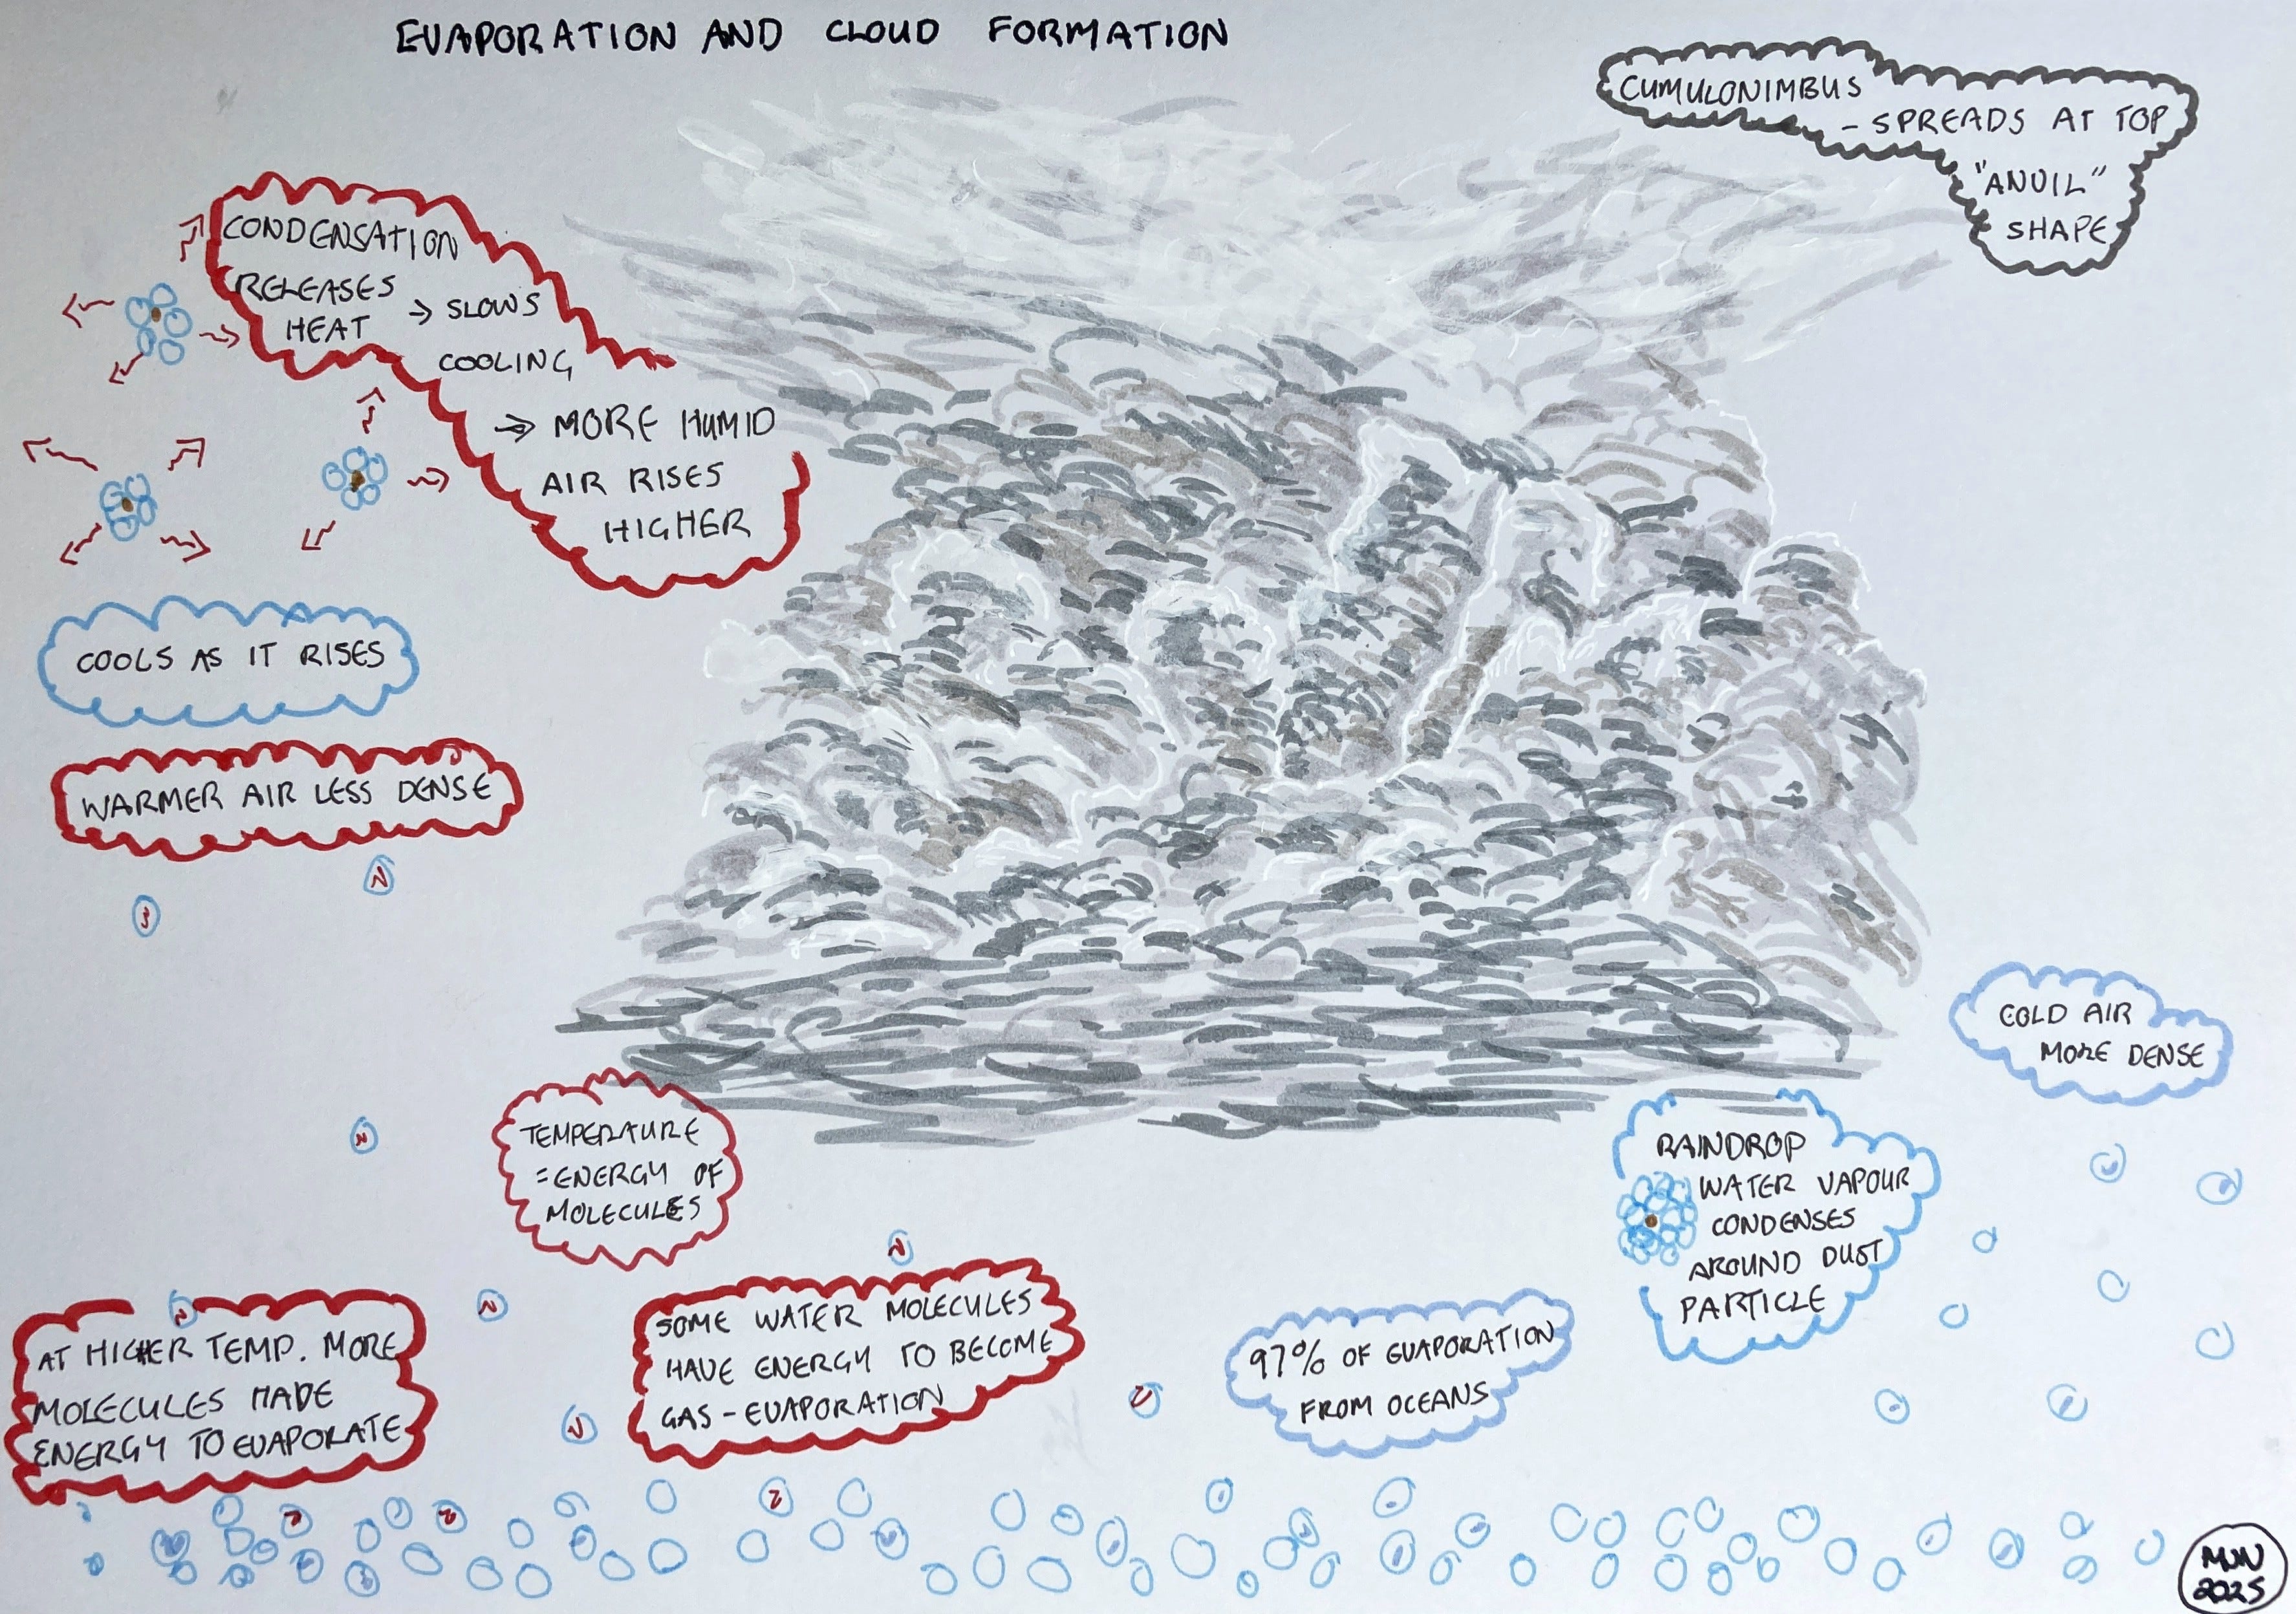 EVAPORATION AND CLOUD FORMATION
CUMULONIMBUS
- SPREADS AT TOP
"ANVIL"
SHAPE
CONDENSATION
RELEASES
HEAT
→ SLOWS
COOLING
→ MORE HUMID
AIR RISES
HIGHER
COOLS AS IT RISES
WARMER AIR LESS DENSE
COLD AIR
MORE DENSE
TEMPERATURE
= ENERGY OF
MOLECULES
RAINDROP
WATER VAPOUR
CONDENSES
AROUND DUST
PARTICLE
AT HIGHER TEMP. MORE
MOLECULES HAVE
ENERGY TO EVAPORATE
SOME WATER MOLECULES
HAVE ENERGY TO BECOME
GAS - EVAPORATION
97% OF EVAPORATION
FROM OCEANS
MJN
2025